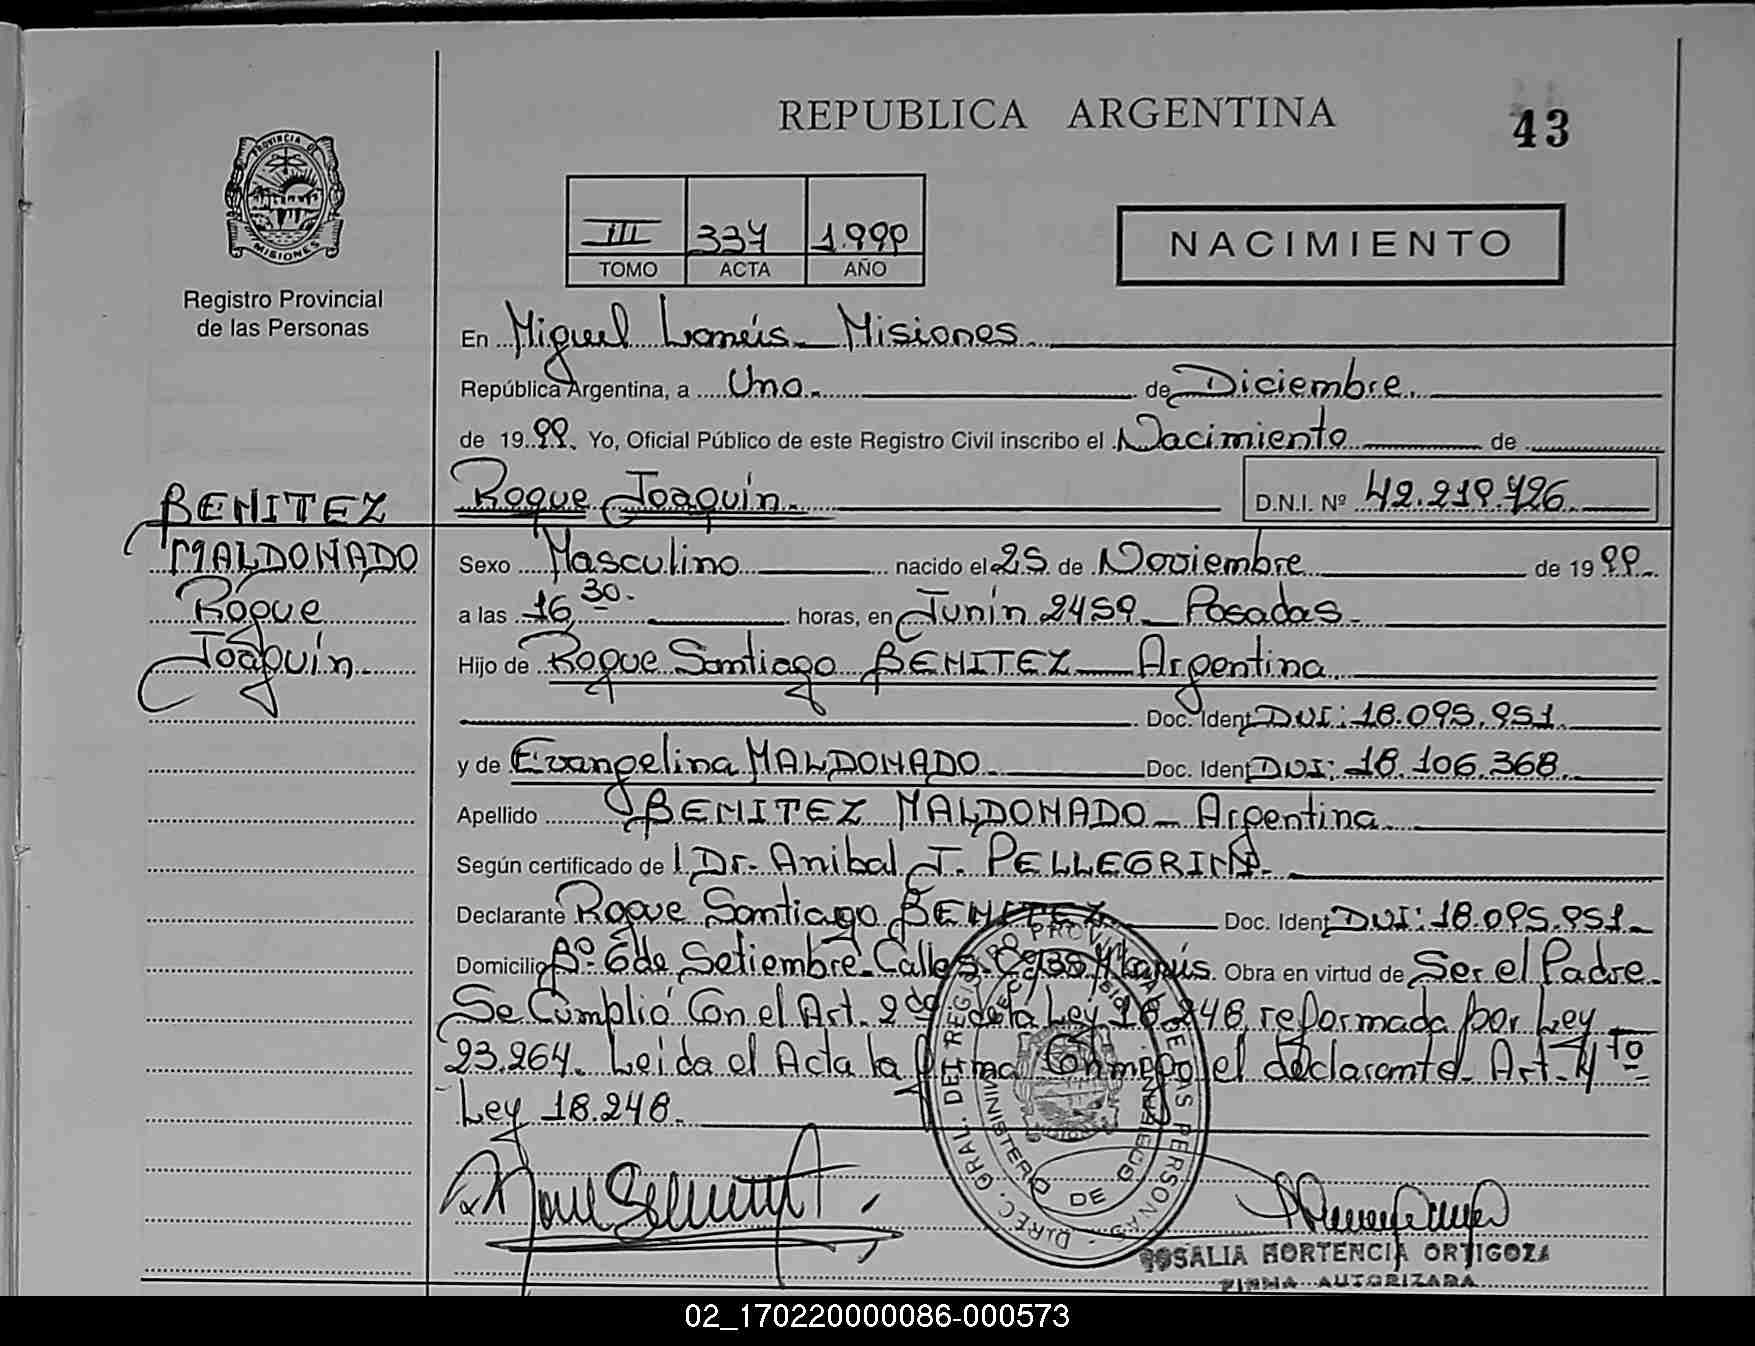 REPUBLICA ARGENTINA
43
PROVINCIA DE
MISIONES
Registro Provincial
de las Personas
III 334 1.999
TOMO ACTA AÑO
NACIMIENTO
En Miguel Lanús - Misiones
República Argentina, a Uno. de Diciembre.
de 1999. Yo, Oficial Público de este Registro Civil inscribo el Nacimiento de
Roque Joaquín. D.N.I. Nº 42.219.426
BENITEZ
MALDONADO
Roque
Joaquín
Sexo Masculino nacido el 25 de Noviembre de 1999.
a las 16,30- horas, en Junín 2459 - Posadas -
Hijo de Roque Santiago BENITEZ - Argentina.
Doc. Ident. DNI: 18.095.951.
y de Evangelina MALDONADO. Doc. Ident. DNI: 18.106.368.
Apellido BENITEZ MALDONADO - Argentina
Según certificado de l Dr. Anibal J. PELLEGRINI.
Declarante Roque Santiago BENITEZ Doc. Ident. DNI: 18.095.951-
Domicilio Bº 6 de Setiembre - Calle Lanús. Obra en virtud de Ser el Padre.
Se Cumplió Con el Art. 2do de la Ley 18.248, reformada por Ley
23.264. Leida el Acta la firma Conmigo el declarante - Art. 4to
Ley 18.248.
DIREC. GRAL. DEL REGISTRO PROVINCIAL DE LAS PERSONAS
MINISTERIO DE GOBIERNO
ROSALIA HORTENCIA ORTIGOZA
FIRMA AUTORIZADA
02_170220000086-000573